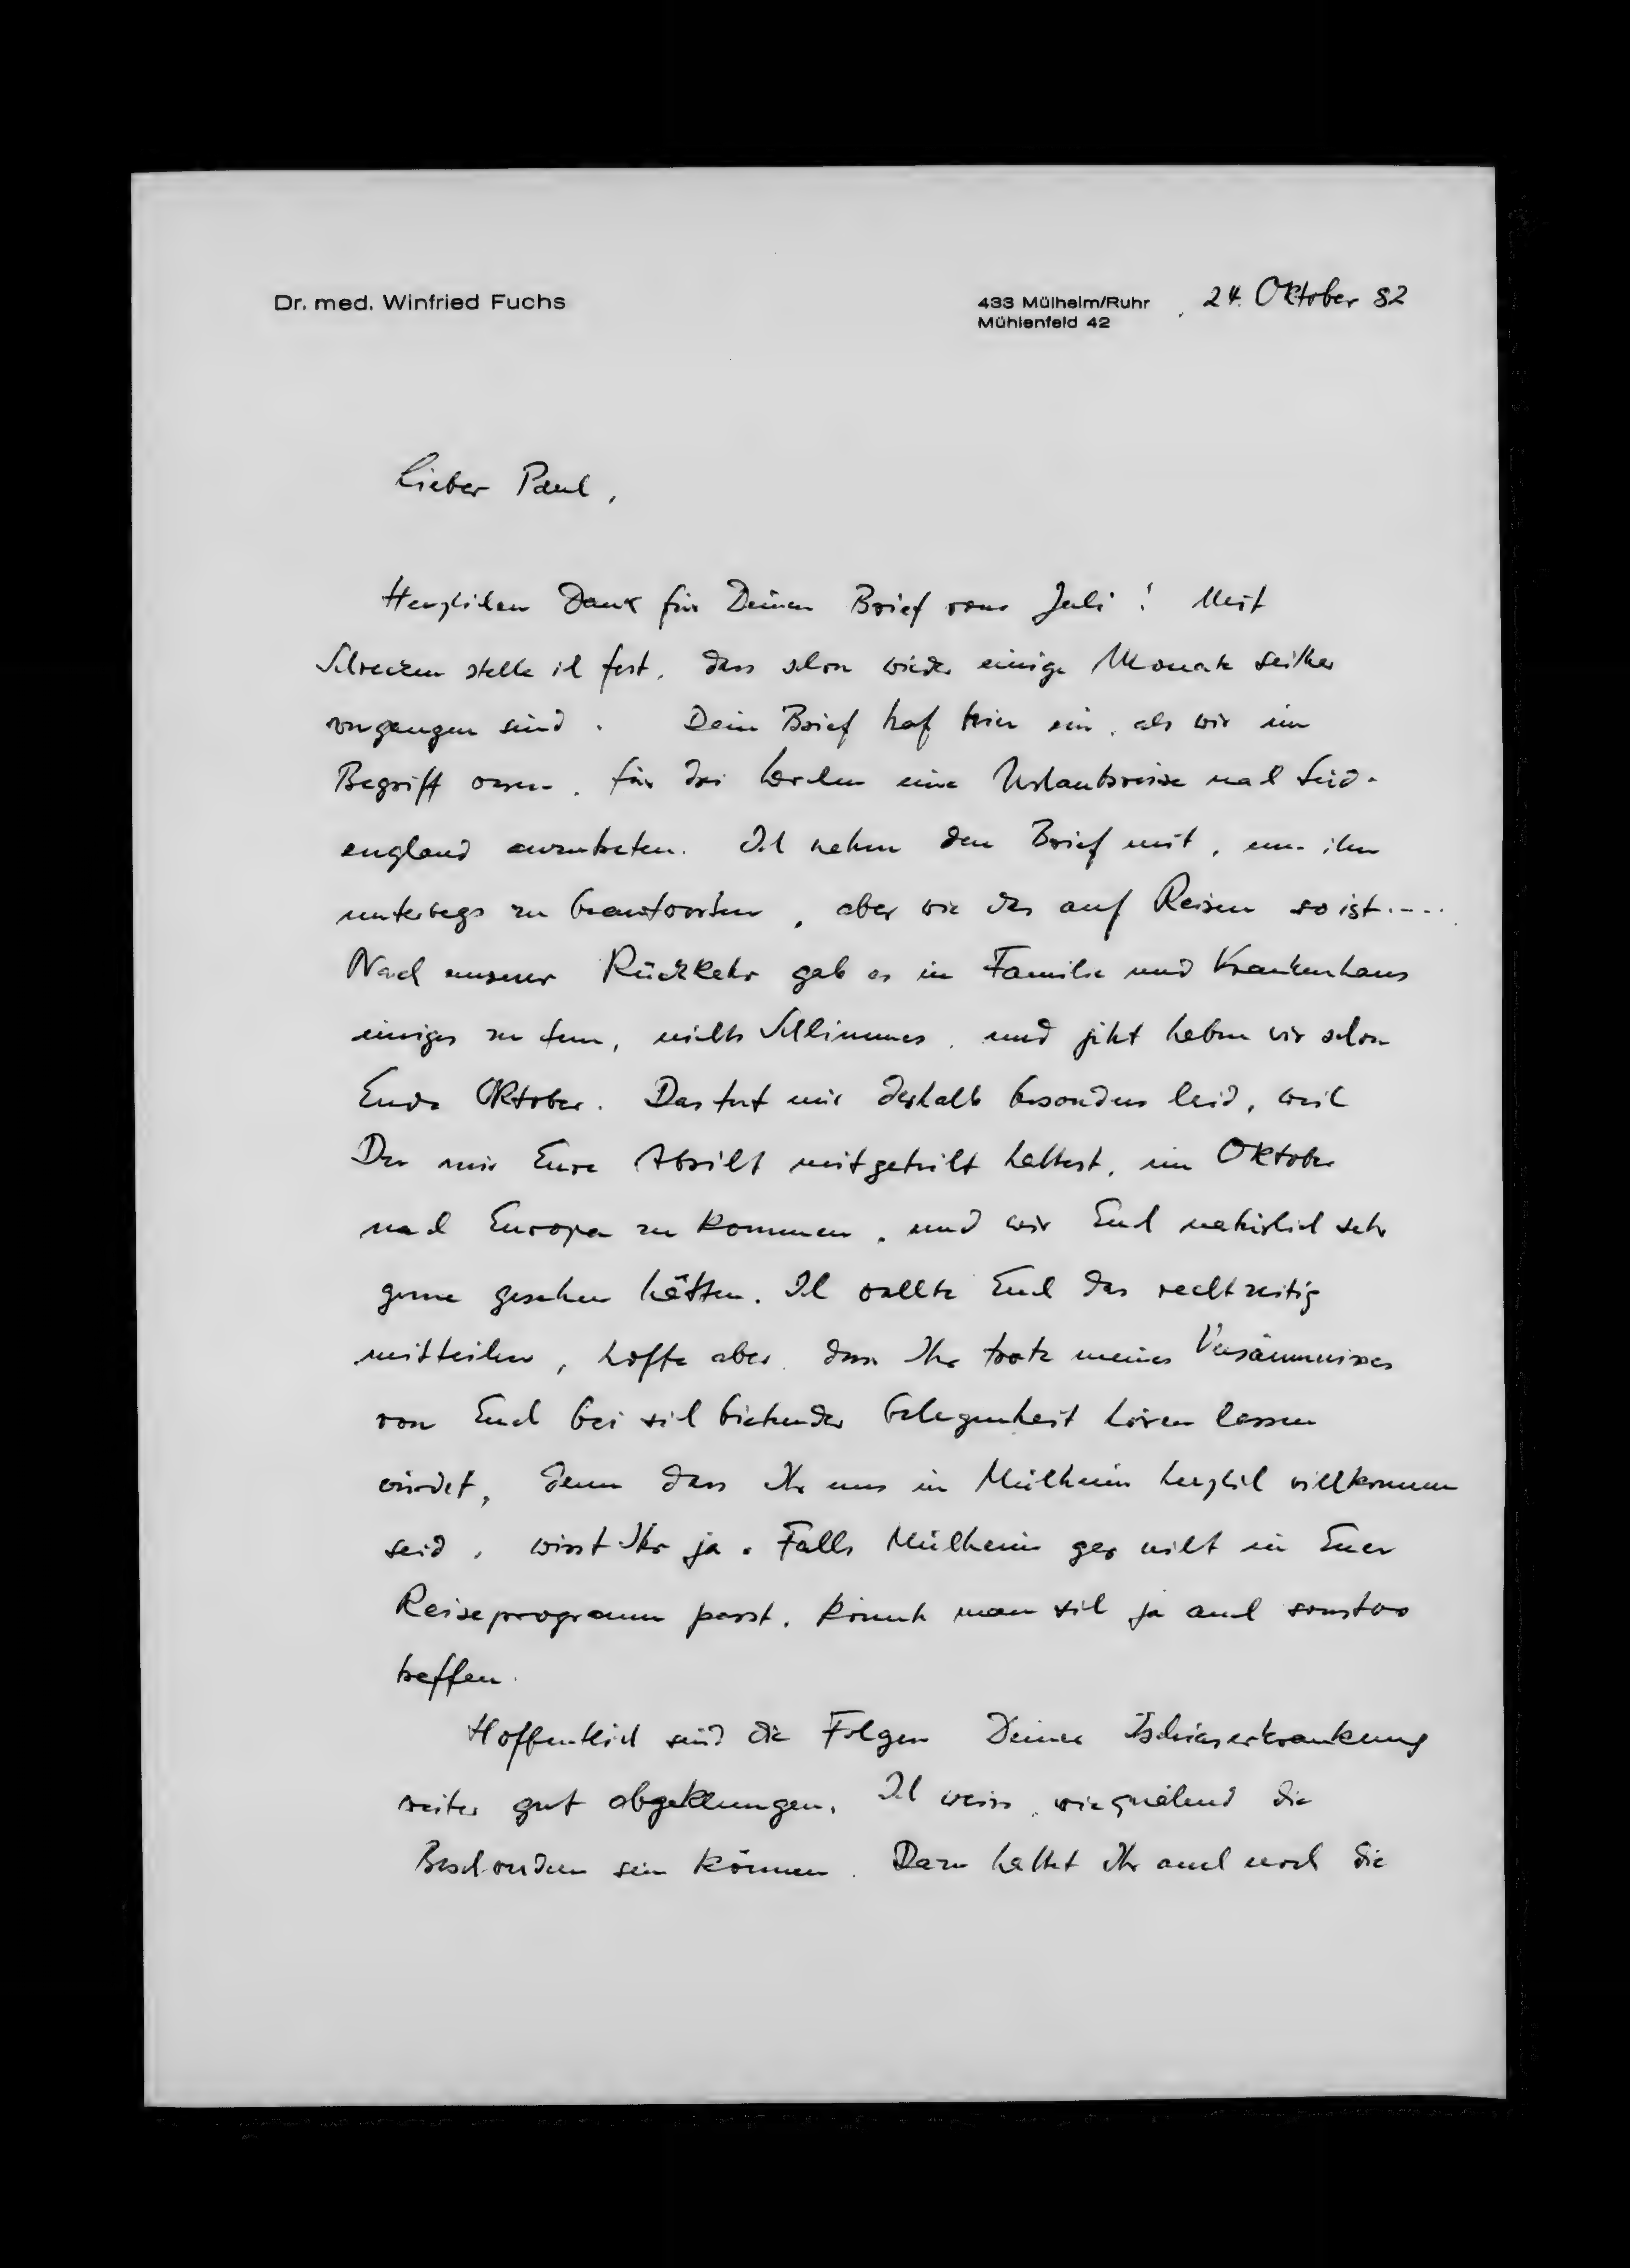 Dr. med. Winfried Fuchs
433 Mülheim/Ruhr
Mühlenfeld 42
24. Oktober 82
Lieber Paul,
Herzlichen Dank für Deinen Brief vom Juli! Mit
Schrecken stelle ich fest, dass schon wieder einige Monate seither
vergangen sind. Dein Brief traf hier ein, als wir im
Begriff waren, für drei Wochen eine Urlaubsreise nach Süd-
england anzutreten. Ich nahm den Brief mit, um ihn
unterwegs zu beantworten, aber wie das auf Reisen so ist.....
Nach unserer Rückkehr gab es in Familie und Krankenhaus
einiges zu tun, nichts Schlimmes, und jetzt haben wir schon
Ende Oktober. Das tut mir deshalb besonders leid, weil
Du mir Eure Absicht mitgeteilt hattest, im Oktober
nach Europa zu kommen, und wir Euch natürlich sehr
gerne gesehen hätten. Ich wollte Euch das rechtzeitig
mitteilen, hoffe aber, dass Ihr trotz meines Versäumnisses
von Euch bei sich bietender Gelegenheit hören lassen
würdet, denn dass Ihr uns in Mülheim herzlich willkommen
seid, wisst Ihr ja. Falls Mülheim gar nicht in Euer
Reiseprogramm passt, könnte man sich ja auch sonstwo
treffen.
Hoffentlich sind die Folgen Deiner Ischiaserkrankung
weiter gut abgeklungen. Ich weiss, wie quälend die
Beschwerden sein können. Dazu hattet Ihr auch noch die